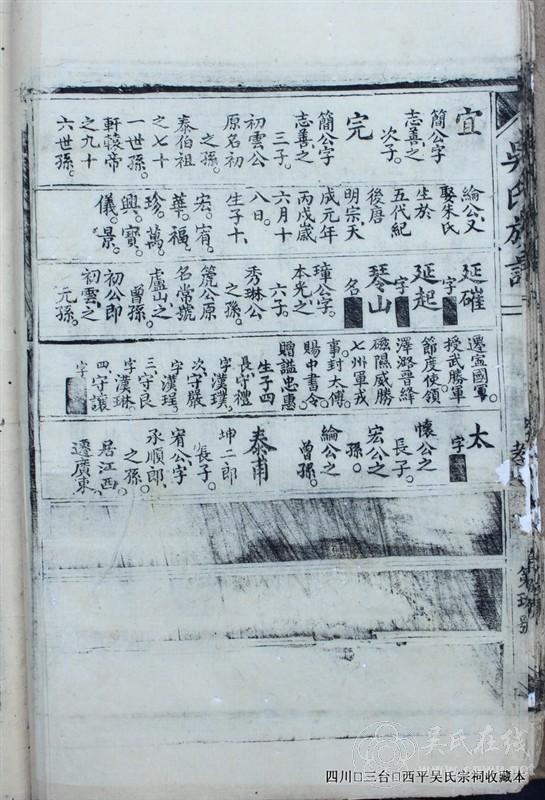 吳氏族譜
宜
簡公字
志善之
次子。
完
簡公字
志善之
三子。
初雲公
原名初
之孫。
泰伯祖
之七十
一世孫。
軒轅帝
之九十
六世孫。
綸公又
娶朱氏
生於
五代紀
後唐
明宗天
成元年
丙戌歲
六月十
八日。
生子十、
宏。宥。
華。福。
珍。萬。
興。寶。
儀。景。
延
字
延起
字
琴山
名
璋公字
本光之
六子。
秀琳公
之孫。
篪公原
名常號
盧山之
曾孫。
初公即
初雲之
元孫。
遷宣國軍
授武勝軍
節度使領
澤潞晉絳
磁隰威勝
七州軍戎
事封太傅
賜中書令
贈謚忠惠
生子四
長守禮
字漢璞
次守嚴
字漢瑆
三守良
字漢琳
四守讓
字
太
字
懷公之
長子。
宏公之
孫。
綸公之
曾孫。
泰甫
坤二郎
長子。
宥公字
永順郎
之孫。
居江西。
遷廣東。
吴氏在线
四川□三台□西平吴氏宗祠收藏本